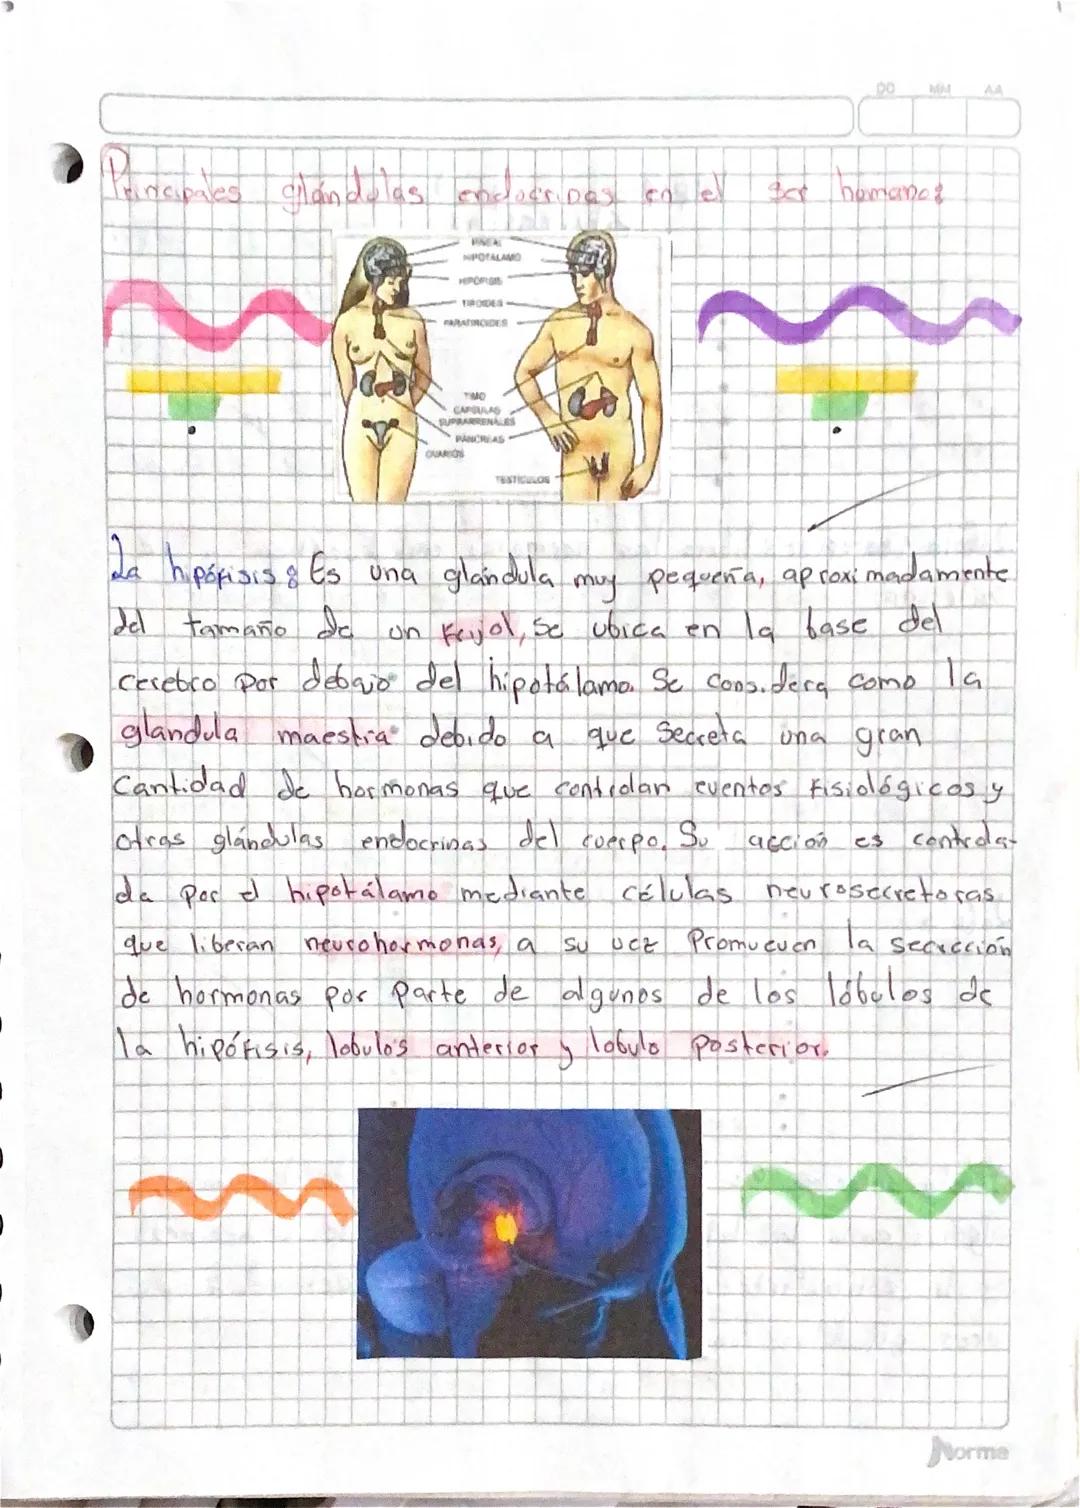 DD MM AA
Principales glándulas endocrinas en el ser humano:
PINEAL
HIPOTALAMO
HIPOFISIS
TIROIDES
PARATIROIDES
TIMO
CAPSULAS
SUPRARRENALES
PANCREAS
OVARIOS
TESTICULOS
La hipófisis: Es una glándula muy pequeña, aproximadamente
del tamaño de un frijol, se ubica en la base del
cerebro por debajo del hipotálamo. Se considera como la
glandula maestra debido a que secreta una gran
Cantidad de hormonas que controlan eventos fisiológicos y
otras glándulas endocrinas del cuerpo. Su acción es controla-
da por el hipotálamo mediante células neurosecretoras
que liberan neurohormonas, a su vez Promueven la secrección
de hormonas por parte de algunos de los lóbulos de
la hipófisis, lobulos anterior y lobulo posterior.
Norma